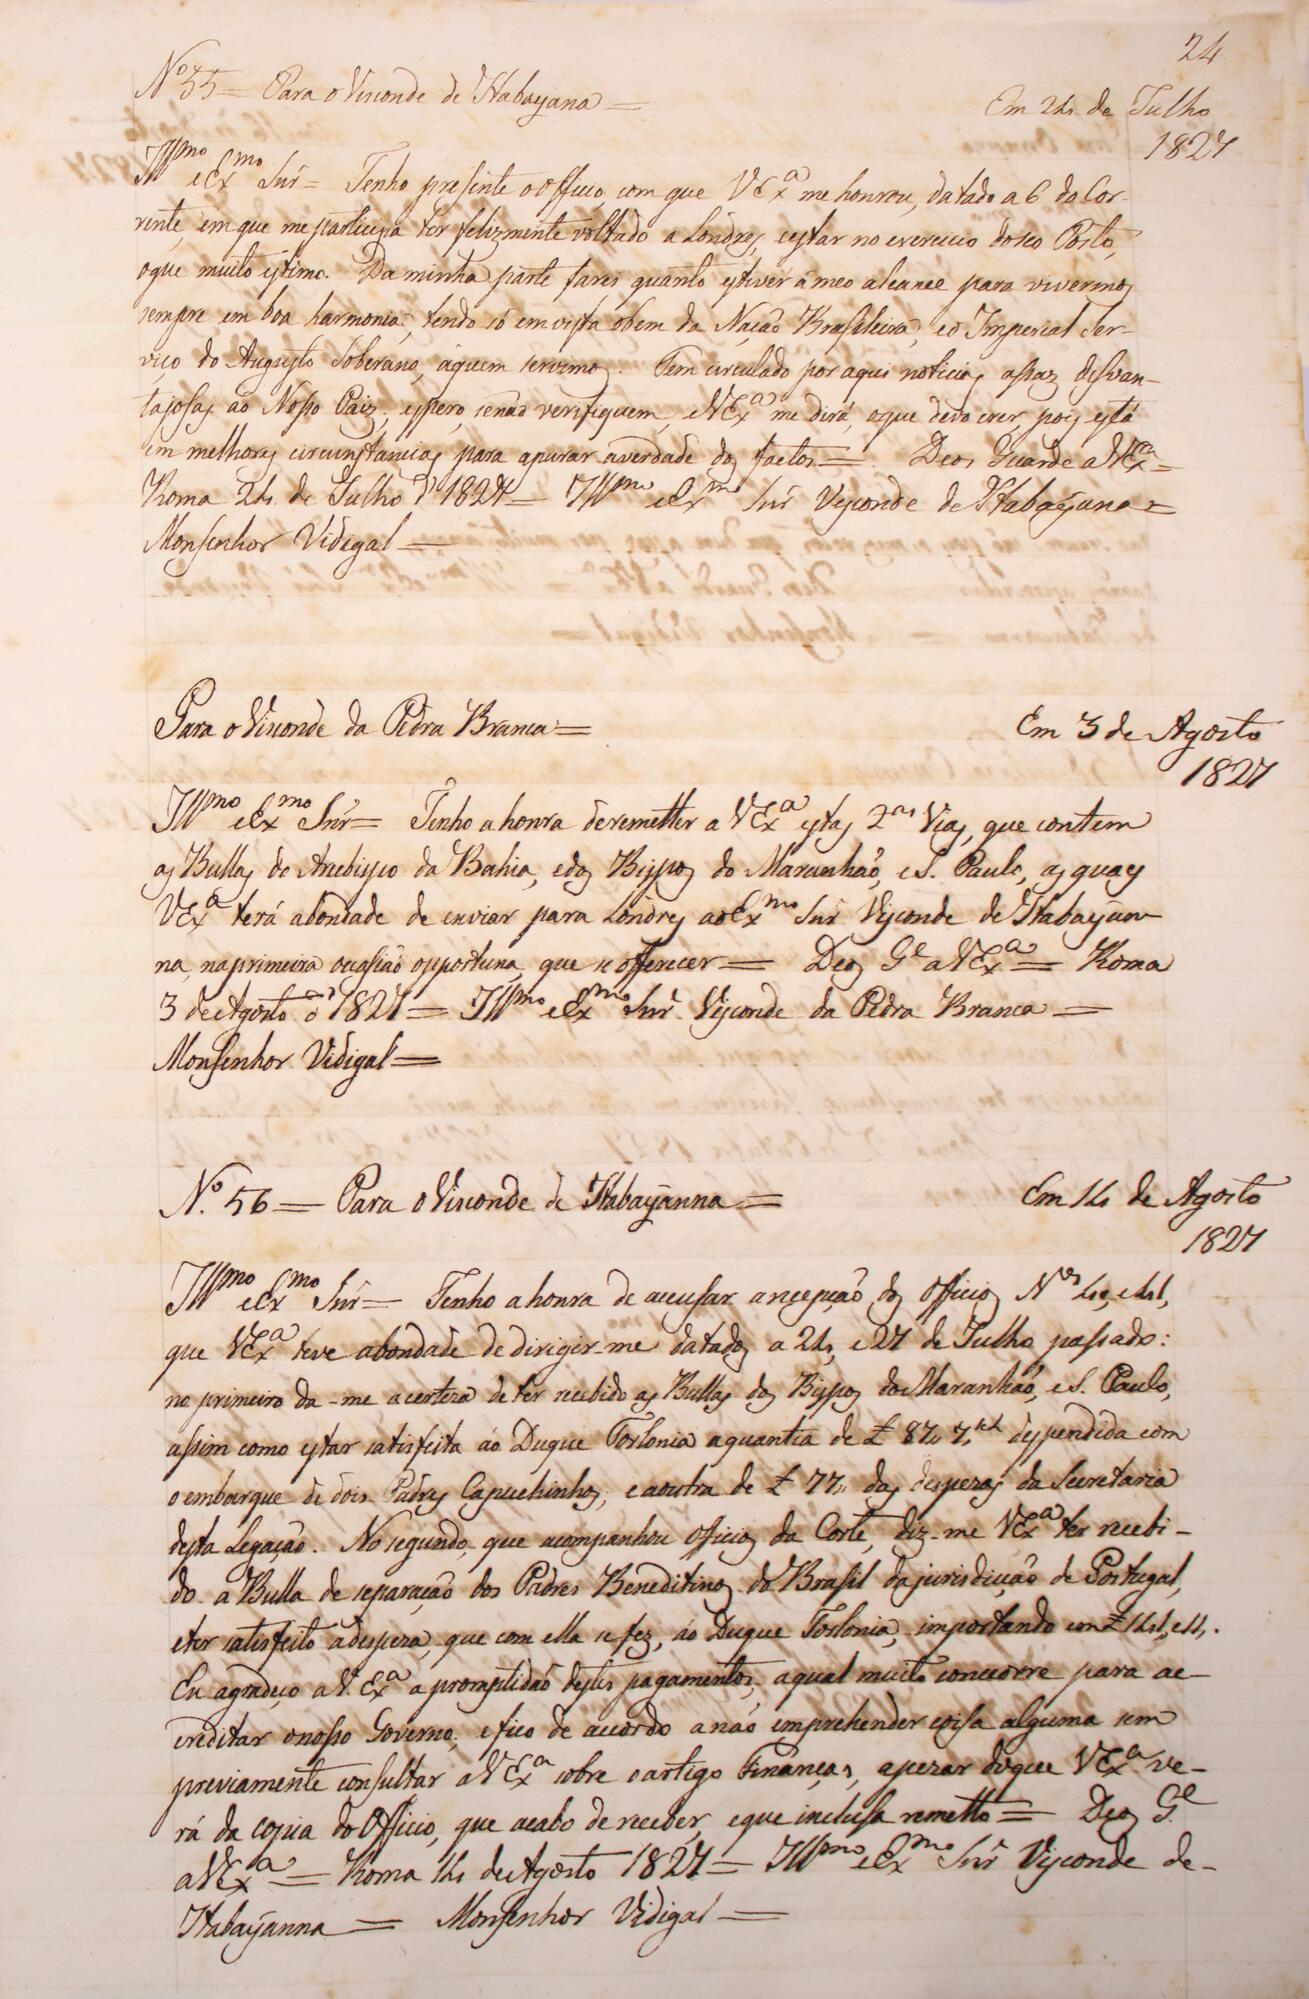 24
Nº 55 = Para o Visconde de Itabayana =
Em 24 de Julho
1827
Illmo e Exmo Snr = Tenho presente o officio, com que VExa me honrou, datado a 6 do Cor-
rente, em que me participa ter felizmente voltado a Londres, e estar no exercicio do seo Posto,
o que muito estimo. Da minha parte farei quanto estiver á meo alcance para vivermos
sempre em boa harmonia, tendo só em vista o bem da Nação Brasileira, e o Imperial Ser-
viço do Augusto Soberano, á quem servimos. Tem circulado por aqui noticias assaz desvan-
tajosas ao Nosso Paiz; espero, se não verifiquem, e VExa me dirá, o que devo crer, pois está
em melhores circunstancias para apurar a verdade dos factos =. Deos Guarde a VExa =
Roma 24 de Julho d' 1827 = Illmo e Exmo Snr Visconde de Itabayana =
Monsenhor Vidigal =
Para o Visconde da Pedra Branca =
Em 3 de Agosto
1827
Illmo e Exmo Snr = Tenho a honra de remetter a VExa estas 2as Vias, que contem
as Bullas do Arcebispo da Bahia, e dos Bispos do Maranhão, e S. Paulo, as quaes
VExa terá a bondade de enviar para Londres ao Exmo Snr Visconde de Itabayan-
na, na primeira occasião opportuna, que se offerecer = Deos Ge a VExa = Roma
3 de Agosto d' 1827 = Illmo e Exmo Snr Visconde da Pedra Branca =
Monsenhor Vidigal =
Nº. 56 = Para o Visconde de Itabayanna =
Em 14 de Agosto
1827
Illmo e Exmo Snr = Tenho a honra de accusar a recepção dos Officios Nos 40, e 41,
que VExa teve a bondade de dirigir-me datados a 24, e 27 de Julho passado:
no primeiro da-me a certeza de ter recebido as Bullas dos Bispos do Maranhão, e S. Paulo,
assim como estar satisfeita ao Duque Torlonia a quantia de £ 87, 7, dispendida com
o embarque de dois Padres Capuchinhos, e a outra de £ 77, das despezas da Secretaria
desta Legação. No segundo, que acompanhou officios da Corte, diz-me VExa ter recebi-
do a Bulla de separação dos Padres Beneditinos do Brasil da jurisdicção de Portugal,
e ter satisfeito a despeza, que com ella se fez, ao Duque Torlonia, importando em £ 141, e 4,.
Eu agradeço a V.Exa a promptidaõ destes pagamentos, a qual muito concorre para ac-
creditar o nosso Governo; e fico de accordo a naõ emprehender coisa alguma sem
previamente consultar a VExa sobre o artigo Finanças, apezar do que VExa ve-
rá da copia do Officio, que acabo de receber, e que inclusa remetto = Deos Ge
a VExa = Roma 14 de Agosto 1827 = Illmo e Exmo Snr Visconde de-
Itabayanna = Monsenhor Vidigal =